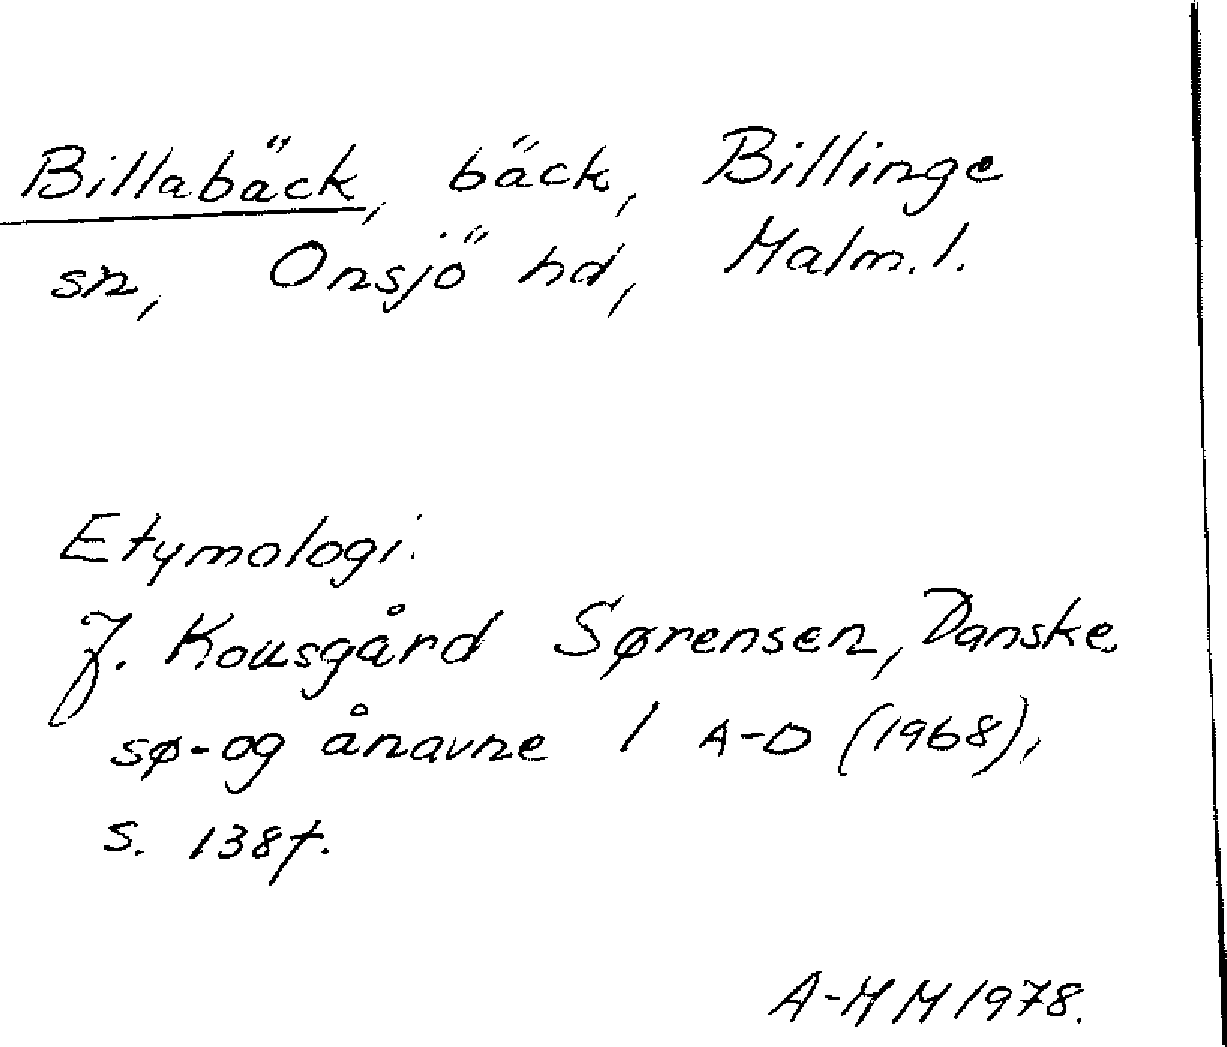 Billabäck, bäck, Billinge
sn, Onsjö hd, Malm. l.
Etymologi.
J. Kousgård Sørensen, Danske
sø- og ånavne I A-D (1968),
s. 138f.
A-MM 1978.